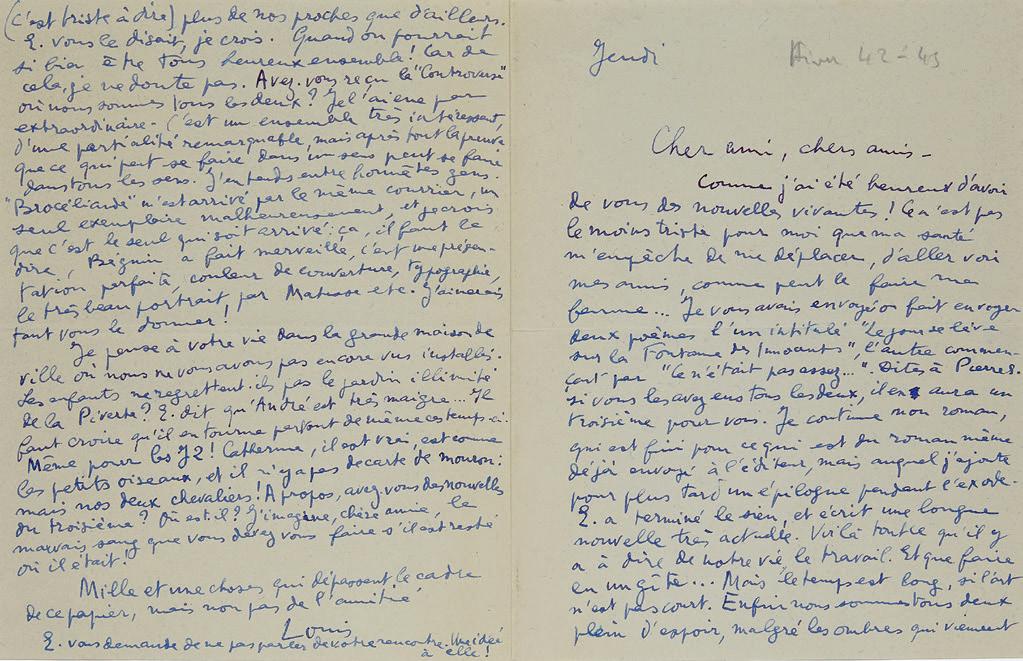 Jeudi
Hiver 42-43
Cher ami, chers amis -
Comme j'ai été heureux d'avoir
de vous des nouvelles vivantes ! Ce n'est pas
le moins triste pour moi que ma santé
m'empêche de me déplacer, d'aller voir
mes amis, comme peut le faire ma
femme... Je vous avais envoyé ou fait envoyer
deux poèmes l'un intitulé "Le jour se lève
sur la Fontaine des Innocents", l'autre commen-
çant par "Ce n'était pas assez...". Dites à Pierre S.
si vous les avez eus tous les deux, il y en aura un
troisième pour vous. Je continue mon roman,
qui est fini pour ce qui est du roman même
déjà envoyé à l'éditeur, mais auquel j'ajoute
pour plus tard un épilogue pendant l'exode.
E. a terminé le sien, et écrit une longue
nouvelle très actuelle. Voilà tout ce qu'il y
a à dire de notre vie, le travail. Et que faire
en un gîte... Mais le temps est long, si l'art
n'est pas court. Enfin nous sommes tous deux
plein d'espoir, malgré les ombres qui viennent
(c'est triste à dire) plus de nos proches que d'ailleurs.
E. vous le disait, je crois. Quand on pourrait
si bien être tous heureux ensemble ! Car de
cela, je ne doute pas. Avez-vous reçu la "Controverse"
où nous sommes tous les deux ? Je l'ai eue par
extraordinaire - C'est un ensemble très intéressant,
d'une partialité remarquable, mais après tout la preuve
que ce qui peut se faire dans un sens peut se faire
dans tous les sens. J'entends entre honnêtes gens.
"Brocéliande" m'est arrivé par le même courrier, un
seul exemplaire malheureusement, et je crois
que c'est le seul qui soit arrivé : ça, il faut le
dire, Béguin a fait merveille, c'est une présen-
tation parfaite, couleur de couverture, typographie,
le très beau portrait, par Matisse etc. J'aimerais
tant vous le donner !
Je pense à votre vie dans la grande maison de
ville où nous ne vous avons pas encore vus installés.
Les enfants ne regrettent-ils pas le jardin illimité
de la Piverte ? E. dit qu'André est très maigre... Il
faut croire qu'il en tourne pas mal de même ces temps-ci.
Même pour les J2 ! Catherine, il est vrai, est comme
les petits oiseaux, et il n'y a pas de carte de mouron :
mais nos deux chevaliers ! A propos, avez-vous des nouvelles
du troisième ? Où est-il ? J'imagine, chère amie, le
mauvais sang que vous devez vous faire s'il est resté
où il était !
Mille et une choses qui dépassent le cadre
de ce papier, mais non pas de l'amitié
Louis
E. vous demande de ne pas parler de votre rencontre. Une idée
à elle !